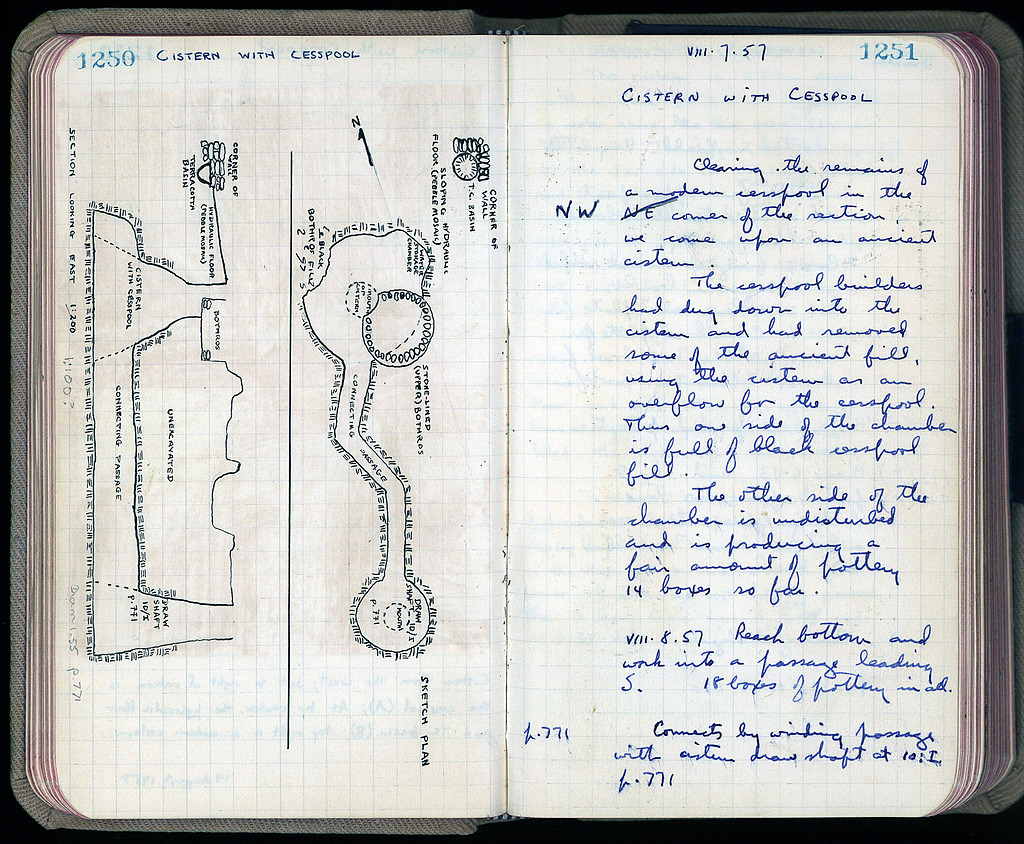 1250 CISTERN WITH CESSPOOL
N
CORNER OF
WALL
T.C. BASIN
SLOPING HYDRAULIC
FLOOR (PEBBLE MOSAIC)
WATER
STORAGE
CHAMBER
MOUTH
OF
CISTERN
BLACK
BOTHROS FILL
STONE-LINED
(UPPER) BOTHROS
CONNECTING PASSAGE
DRAW
SHAFT 10/I
(MOUTH)
P. 771
SKETCH PLAN
CORNER OF
WALL
TERRACOTTA
BASIN
HYDRAULIC FLOOR
(PEBBLE MOSAIC)
CISTERN
WITH CESSPOOL
BOTHROS
UNEXCAVATED
CONNECTING PASSAGE
DRAW
SHAFT
10/I
P. 771
SECTION LOOKING EAST 1:200
1:100?
P 771
VIII·7·57 1251
CISTERN WITH CESSPOOL
Clearing the remains of
a modern cesspool in the
NW NE corner of the section
we come upon an ancient
cistern.
The cesspool builders
had dug down into the
cistern and had removed
some of the ancient fill,
using the cistern as an
overflow for the cesspool.
Thus one side of the chamber
is full of black cesspool
fill.
The other side of the
chamber is undisturbed
and is producing a
fair amount of pottery
14 boxes so far.
VIII·8·57 Reach bottom and
work into a passage leading
S. 18 boxes of pottery in all.
p.771 Connects by winding passage
with cistern draw shaft at 10:I
p.771